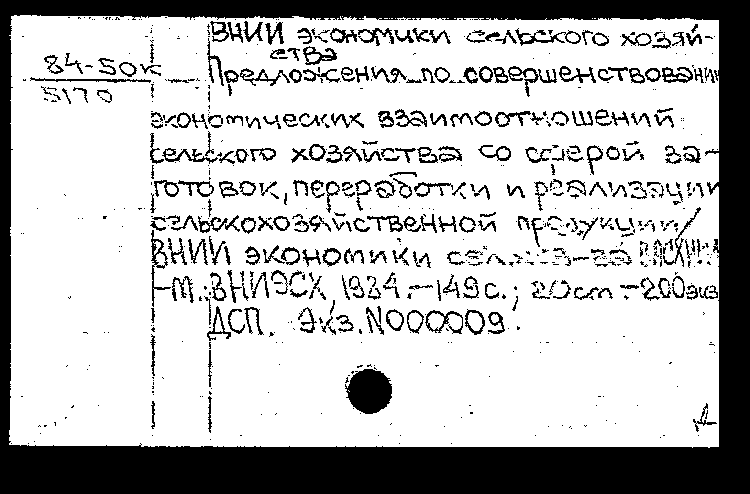 ВНИИ экономики сельского хозяй-
ства
84-50к
5170
Предложения по совершенствовани
экономических взаимоотношений
сельского хозяйства со сферой за-
готовок, переработки и реализации
сельскохозяйственной продукции/
ВНИИ экономики сельск.-ва ВАСХНИЛ
-М.:ВНИЭСХ, 1984.-149с.; 20см.-200экз
ДСП. Экз.N000009.